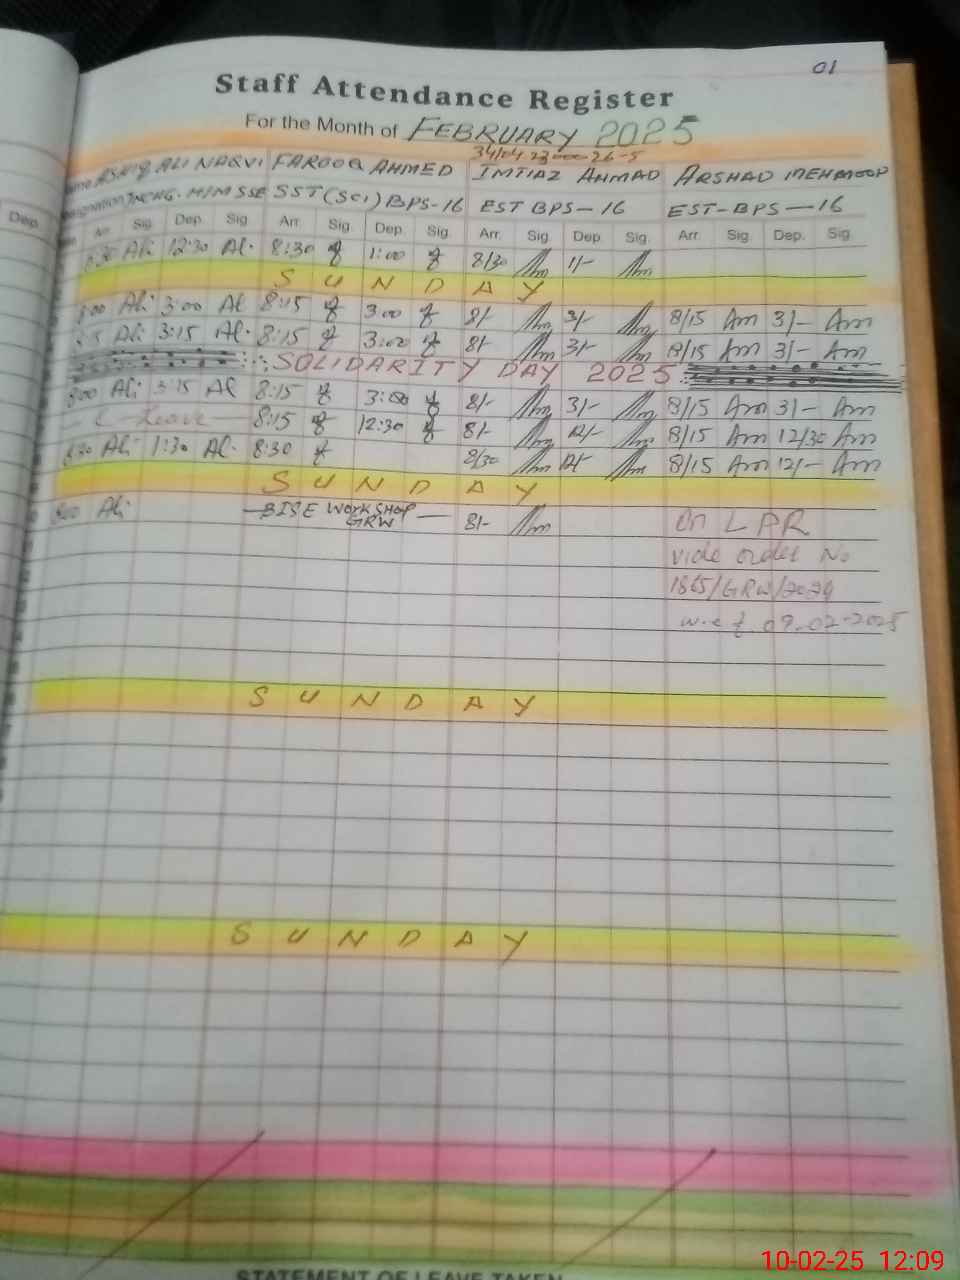 01
Staff Attendance Register
For the Month of FEBRUARY 2025
ASHIQ ALI NAQVI FAROOQ AHMED IMTIAZ AHMAD ARSHAD MEHMOOD
INCHG. M/M SSE SST (Sci) BPS-16 EST BPS-16 EST-BPS-16
Dep. Arr. Sig. Dep. Sig. Arr. Sig. Dep. Sig. Arr. Sig. Dep. Sig. Arr. Sig. Dep. Sig.
8:30 Ali 12:30 Al. 8:30 1:00 8/30 1/-
SUNDAY
8:00 Ali 3:00 Al 8:15 3:00 8/- 3/- 8/15 Am 3/- Am
Ali 3:15 Al. 8:15 3:00 8/- 3/- 8/15 Am 3/- Am
SOLIDARITY DAY 2025
8:00 Ali 3:15 Al 8:15 3:00 8/- 3/- 8/15 Am 3/- Am
Leave 8:15 12:30 8/- 12/- 8/15 Am 12/30 Am
8:30 Ali 1:30 Al. 8:30 8/30 12/- 8/15 Am 12/- Am
SUNDAY
8:00 Ali — BISE WORKSHOP GRW — 8/- On LPR
vide order No
/GRW/2024
w.e.f 09-02-2025
SUNDAY
SUNDAY
STATEMENT OF LEAVE TAKEN
10-02-25 12:09